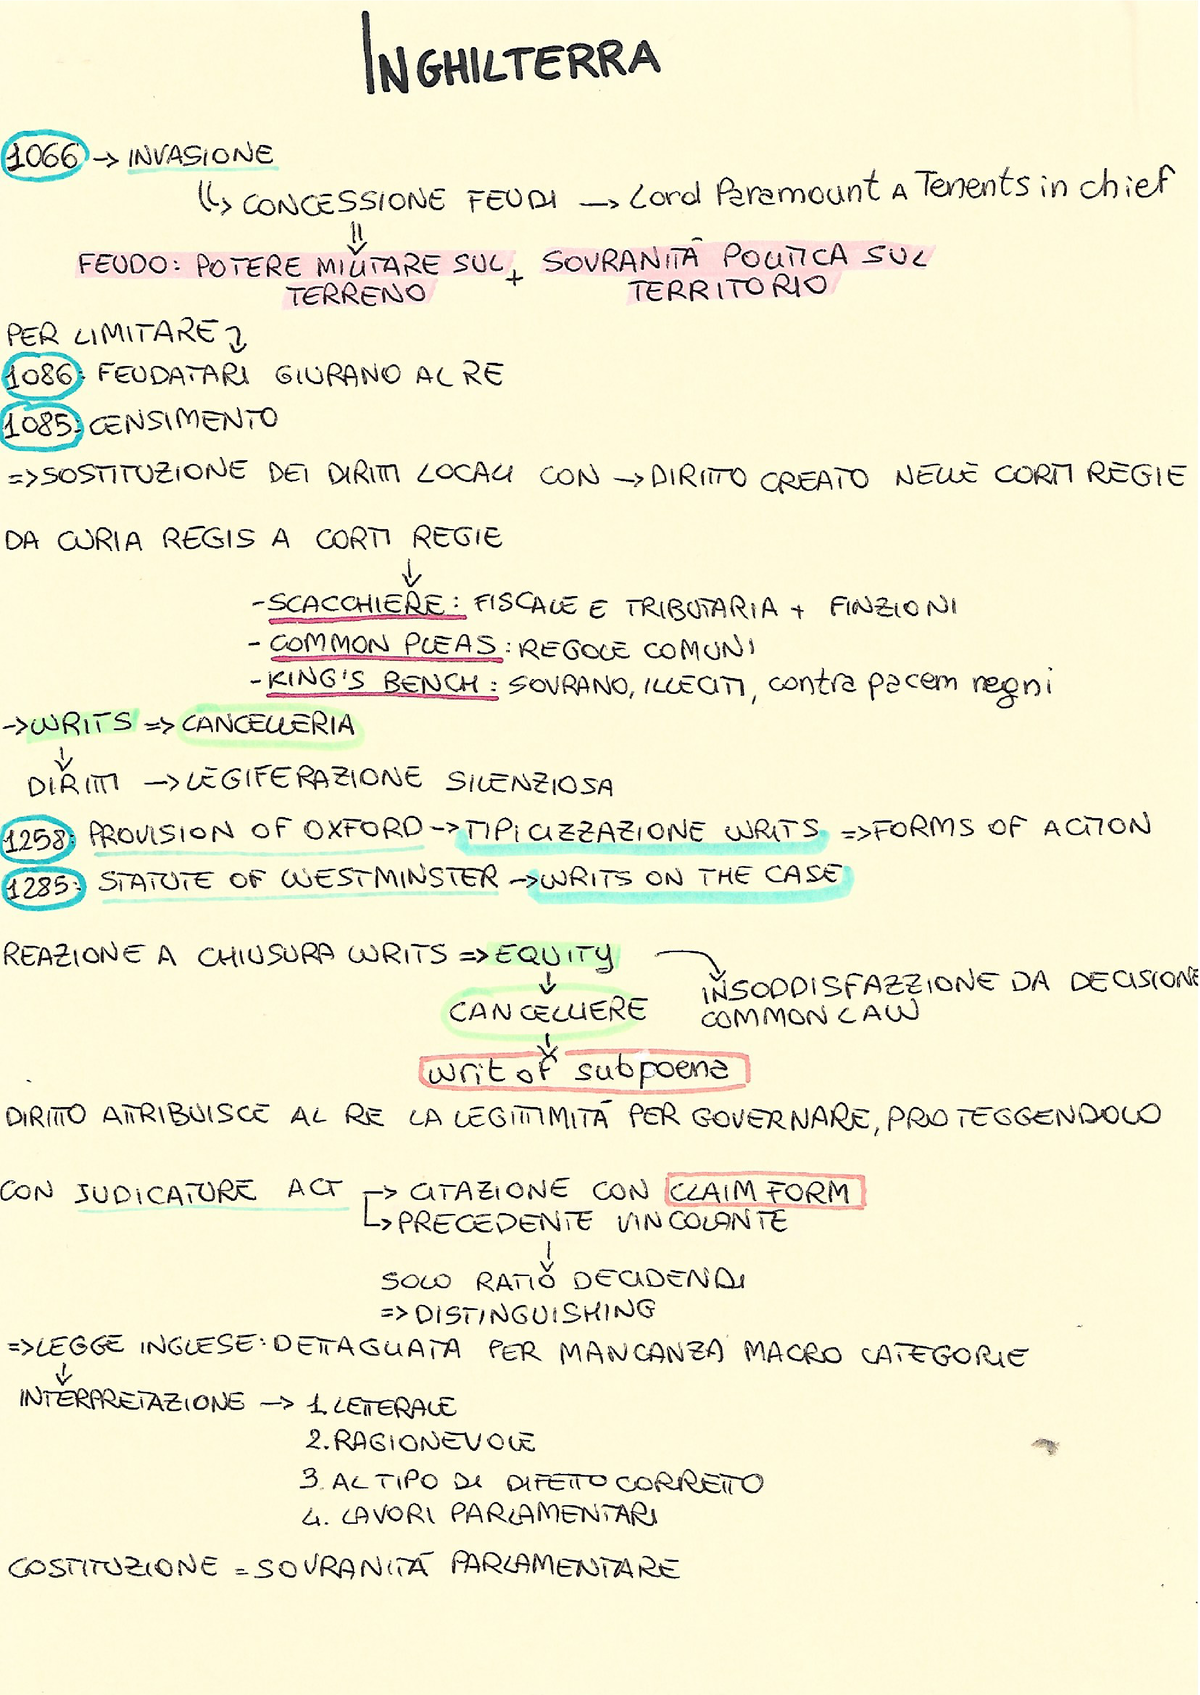 INGHILTERRA
1066 → INVASIONE
↳ CONCESSIONE FEUDI → Lord Paramount A Tenents in chief
FEUDO: POTERE MILITARE SUL + SOVRANITÀ POLITICA SUL
TERRENO TERRITORIO
PER LIMITARE
1086: FEUDATARI GIURANO AL RE
1085: CENSIMENTO
=> SOSTITUZIONE DEI DIRITTI LOCALI CON → DIRITTO CREATO NELLE CORTI REGIE
DA CURIA REGIS A CORTI REGIE
- SCACCHIERE: FISCALE E TRIBUTARIA + FINZIONI
- COMMON PLEAS: REGOLE COMUNI
- KING'S BENCH: SOVRANO, ILLECITI, contra pacem regni
→ WRITS => CANCELLERIA
DIRITTI → LEGIFERAZIONE SILENZIOSA
1258: PROVISION OF OXFORD → TIPICIZZAZIONE WRITS => FORMS OF ACTION
1285: STATUTE OF WESTMINSTER → WRITS ON THE CASE
REAZIONE A CHIUSURA WRITS => EQUITY
INSODDISFAZZIONE DA DECISIONE
CANCELLIERE COMMON LAW
writ of subpoena
DIRITTO ATTRIBUISCE AL RE LA LEGITTIMITÀ PER GOVERNARE, PROTEGGENDOLO
CON JUDICATURE ACT → CITAZIONE CON CLAIM FORM
↳ PRECEDENTE VINCOLANTE
SOLO RATIO DECIDENDI
=> DISTINGUISHING
=> LEGGE INGLESE: DETTAGLIATA PER MANCANZA MACRO CATEGORIE
INTERPRETAZIONE → 1. LETTERALE
2. RAGIONEVOLE
3. AL TIPO DI DIFETTO CORRETTO
4. LAVORI PARLAMENTARI
COSTITUZIONE = SOVRANITÀ PARLAMENTARE